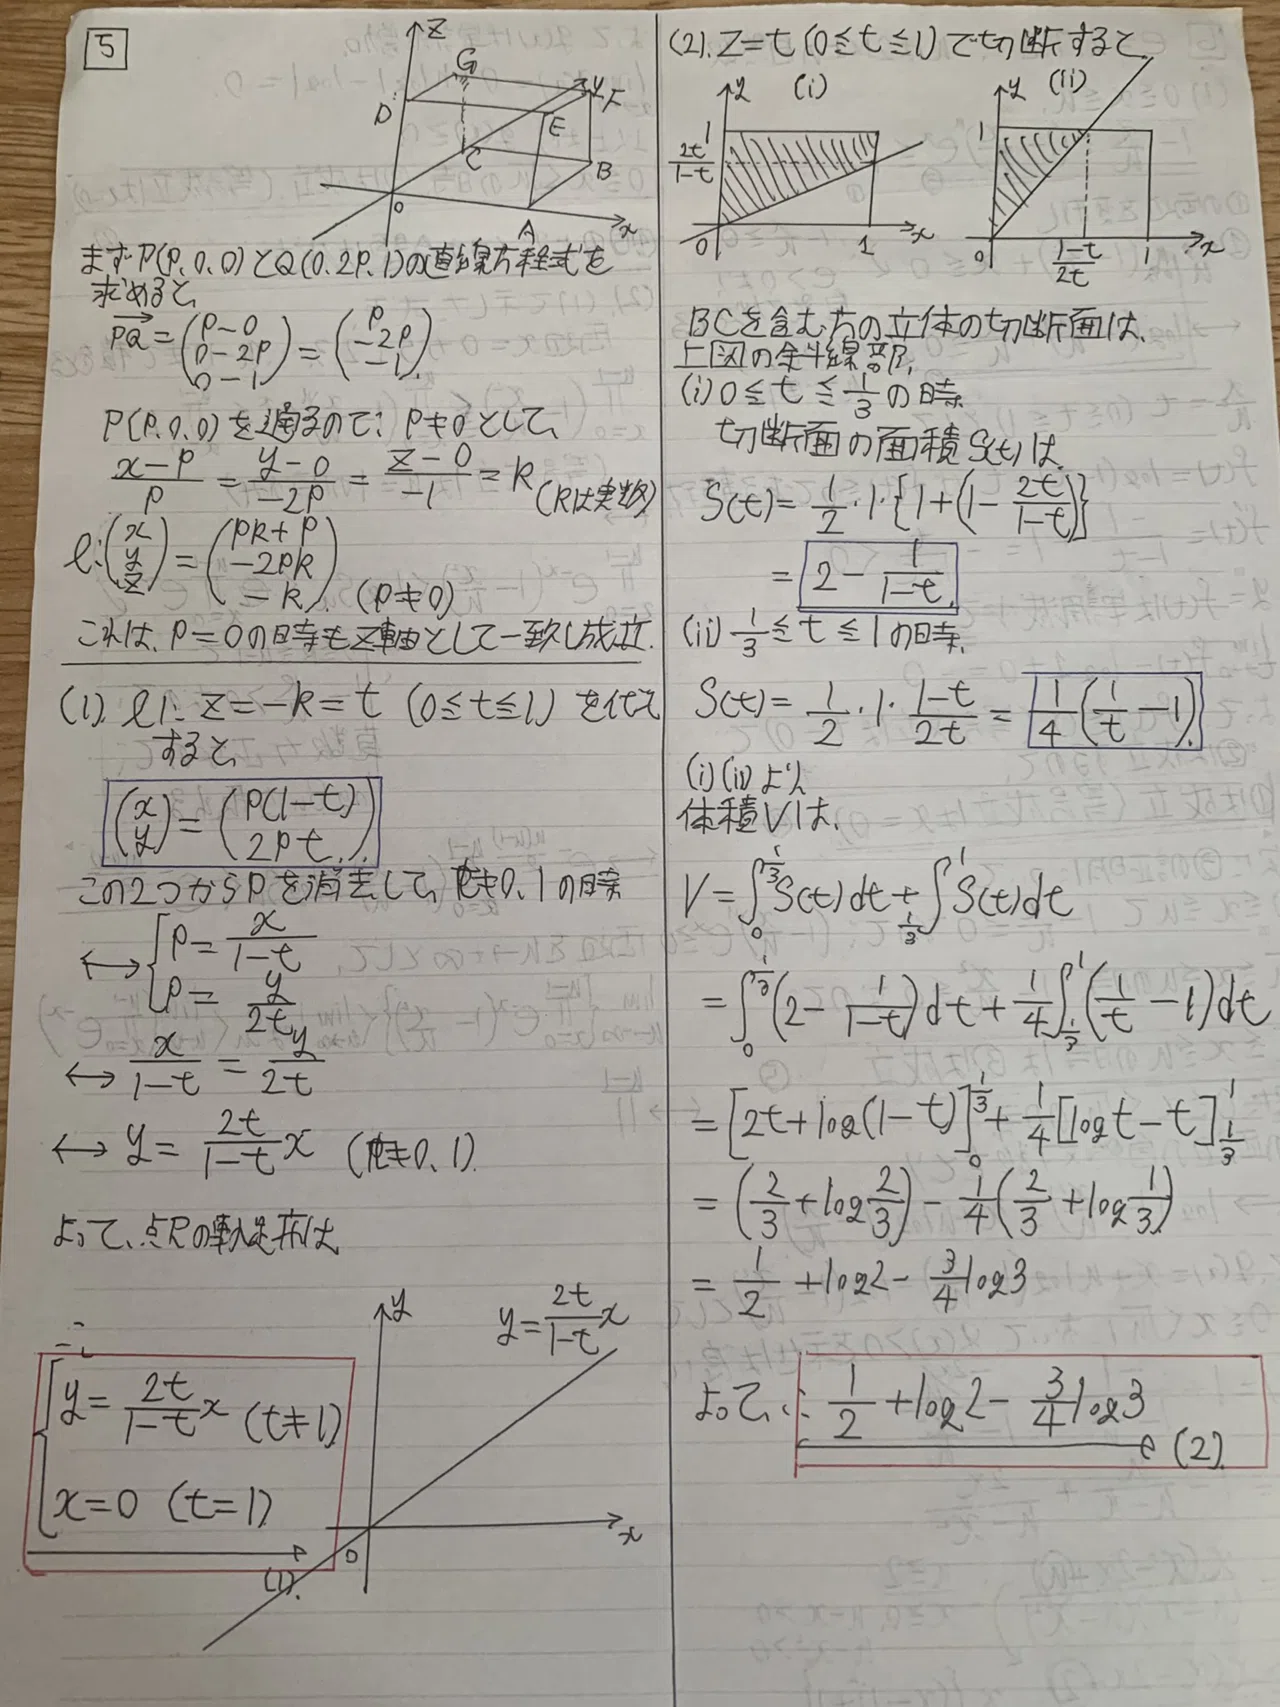 5
z
G
D
y
F
E
C
B
0
A
x
まずP(P,0,0)とQ(0,2P,1)の直線方程式を
求めると、
PQ = (P-0 0-2P 0-1) = (P -2P -1)
P(P,0,0)を通るので、P≠0として、
x-P/P = y-0/-2P = z-0/-1 = k (kは実数)
l: (x y z) = (Pk+P -2Pk -k) (P≠0)
これは、P=0の時もz軸として一致し成立.
(1). lに z=-k=t (0≦t≦1) を代入
すると、
(x y) = (P(1-t) 2Pt)
この2つからPを消去して、t≠0,1の時
↔ { P = x/1-t
P = y/2t
↔ x/1-t = y/2t
↔ y = 2t/1-t x (t≠0,1)
よって、点Rの軌跡は
y
y = 2t/1-t x
∴
{ y = 2t/1-t x (t≠1)
x=0 (t=1)
0
x
(1)
(2). z=t (0≦t≦1)で切断すると、
y (i)
1
2t/1-t
0
1
x
y (ii)
1
0
1-t/2t
1
x
BCを含む方の立体の切断面は、
上図の斜線部。
(i) 0≦t≦1/3の時、
切断面の面積S(t)は、
S(t) = 1/2・1・{1+(1-2t/1-t)}
= 2 - 1/1-t
(ii) 1/3≦t≦1の時、
S(t) = 1/2・1・1-t/2t = 1/4(1/t -1)
(i)(ii)より
体積Vは、
V = ∫₀^1/3 S(t)dt + ∫1/3^1 S(t)dt
= ∫₀^1/3 (2 - 1/1-t)dt + 1/4∫1/3^1 (1/t -1)dt
= [2t+log(1-t)]₀^1/3 + 1/4[logt-t]1/3^1
= (2/3 + log2/3) - 1/4(2/3 + log1/3)
= 1/2 + log2 - 3/4log3
よって、∴ 1/2 + log2 - 3/4log3
(2)